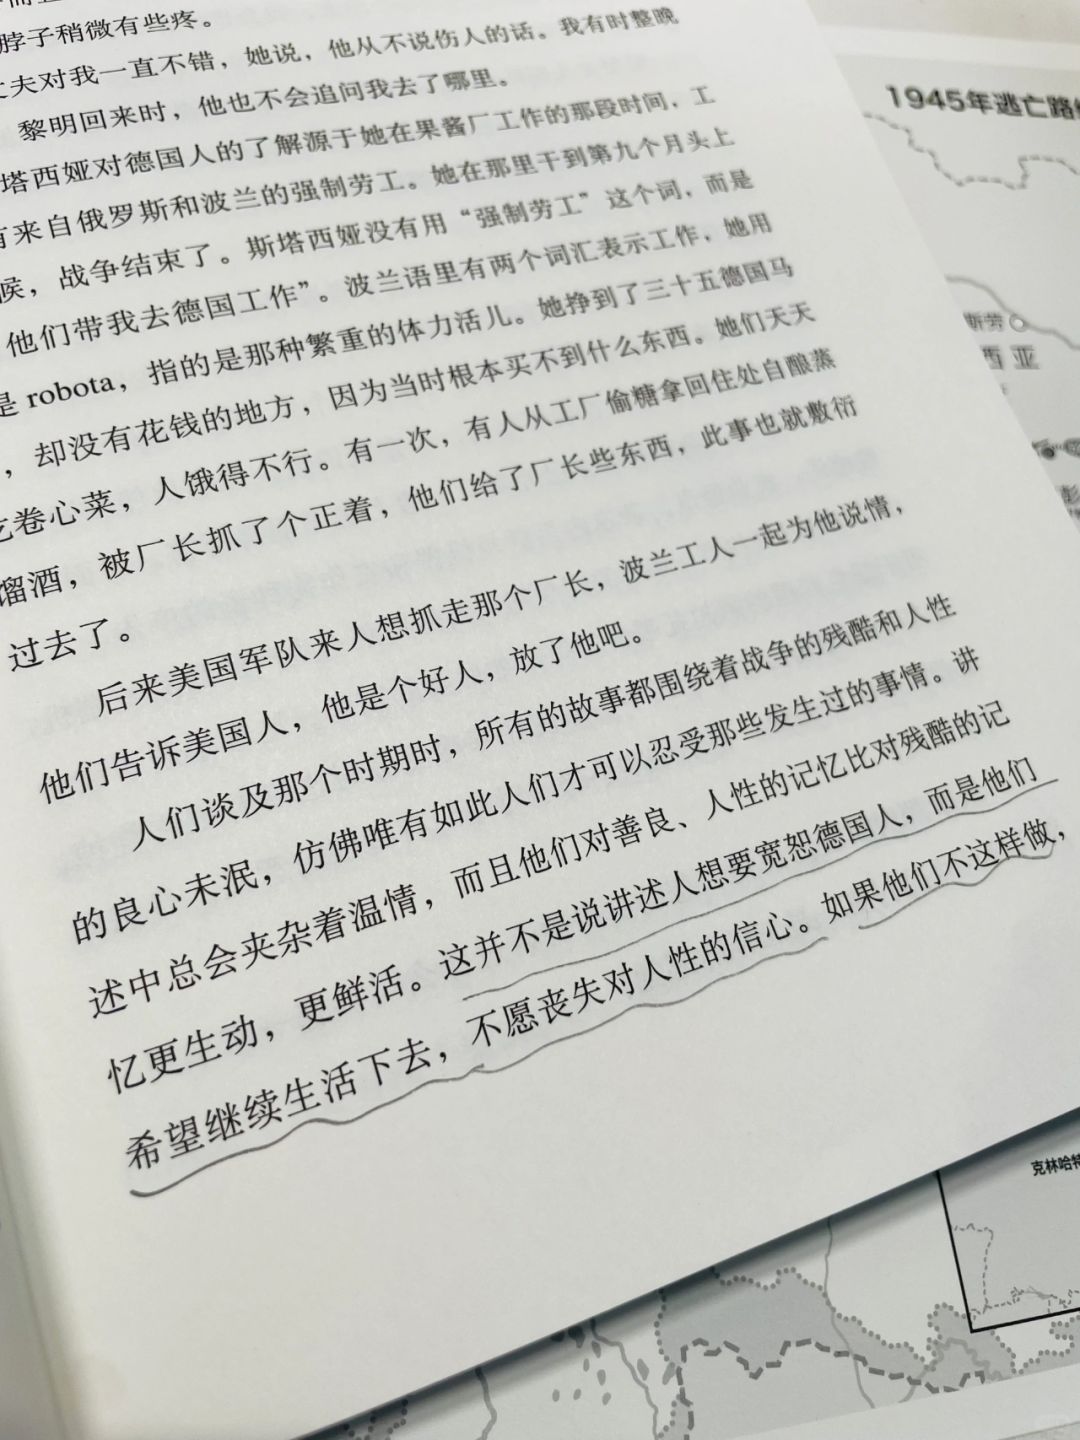 脖子稍微有些疼。
丈夫对我一直不错，她说，他从不说伤人的话。我有时整晚
黎明回来时，他也不会追问我去了哪里。
塔西娅对德国人的了解源于她在果酱厂工作的那段时间，工
有来自俄罗斯和波兰的强制劳工。她在那里干到第九个月头上
候，战争结束了。斯塔西娅没有用“强制劳工”这个词，而是
他们带我去德国工作”。波兰语里有两个词汇表示工作，她用
是 robota，指的是那种繁重的体力活儿。她挣到了三十五德国马
，却没有花钱的地方，因为当时根本买不到什么东西。她们天天
吃卷心菜，人饿得不行。有一次，有人从工厂偷糖拿回住处自酿蒸
馏酒，被厂长抓了个正着，他们给了厂长些东西，此事也就敷衍
过去了。
后来美国军队来人想抓走那个厂长，波兰工人一起为他说情，
他们告诉美国人，他是个好人，放了他吧。
人们谈及那个时期时，所有的故事都围绕着战争的残酷和人性
的良心未泯，仿佛唯有如此人们才可以忍受那些发生过的事情。讲
述中总会夹杂着温情，而且他们对善良、人性的记忆比对残酷的记
忆更生动，更鲜活。这并不是说讲述人想要宽恕德国人，而是他们
希望继续生活下去，不愿丧失对人性的信心。如果他们不这样做，
1945年逃亡路
斯劳
西亚
彭
克林哈特